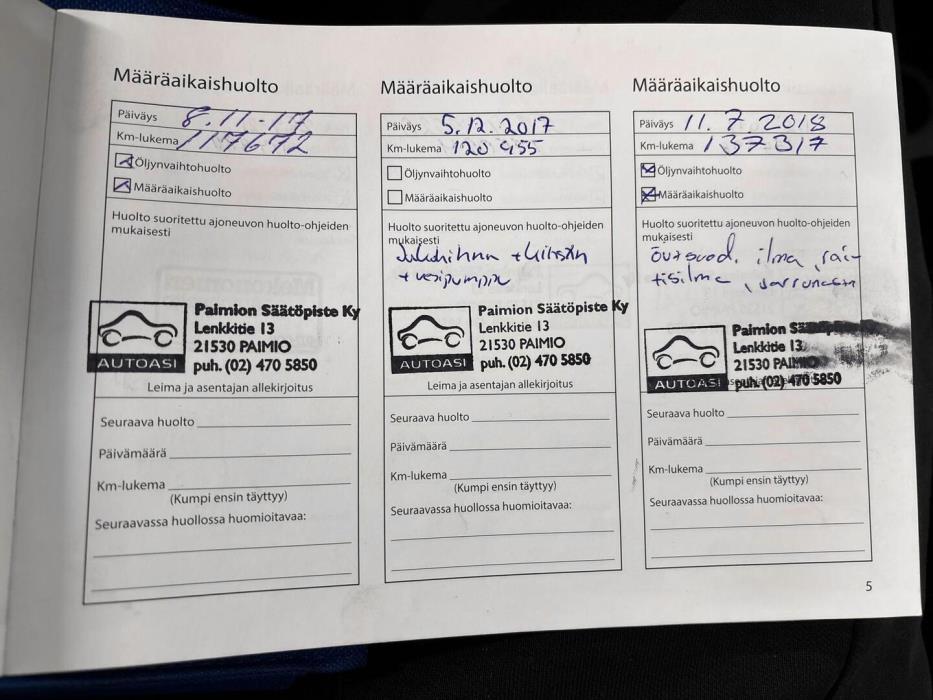 Määräaikaishuolto
Päiväys 8.11.-17
Km-lukema 117672
Öljynvaihtohuolto
Määräaikaishuolto
Huolto suoritettu ajoneuvon huolto-ohjeiden
mukaisesti
Paimion Säätöpiste Ky
Lenkkitie 13
21530 PAIMIO
AUTOASI puh. (02) 470 5850
Leima ja asentajan allekirjoitus
Seuraava huolto
Päivämäärä
Km-lukema
(Kumpi ensin täyttyy)
Seuraavassa huollossa huomioitavaa:
Määräaikaishuolto
Päiväys 5.12.2017
Km-lukema 120455
Öljynvaihtohuolto
Määräaikaishuolto
Huolto suoritettu ajoneuvon huolto-ohjeiden
mukaisesti
Jakohihna + kiristin
+ vesipumppu
Paimion Säätöpiste Ky
Lenkkitie 13
21530 PAIMIO
AUTOASI puh. (02) 470 5850
Leima ja asentajan allekirjoitus
Seuraava huolto
Päivämäärä
Km-lukema
(Kumpi ensin täyttyy)
Seuraavassa huollossa huomioitavaa:
Määräaikaishuolto
Päiväys 11.7.2018
Km-lukema 137317
Öljynvaihtohuolto
Määräaikaishuolto
Huolto suoritettu ajoneuvon huolto-ohjeiden
mukaisesti
ilma, rai-
tisilma,
Paimion
Lenkkitie 13
21530 PAIMIO
AUTOASI puh. (02) 470 5850
Seuraava huolto
Päivämäärä
Km-lukema
(Kumpi ensin täyttyy)
Seuraavassa huollossa huomioitavaa:
5